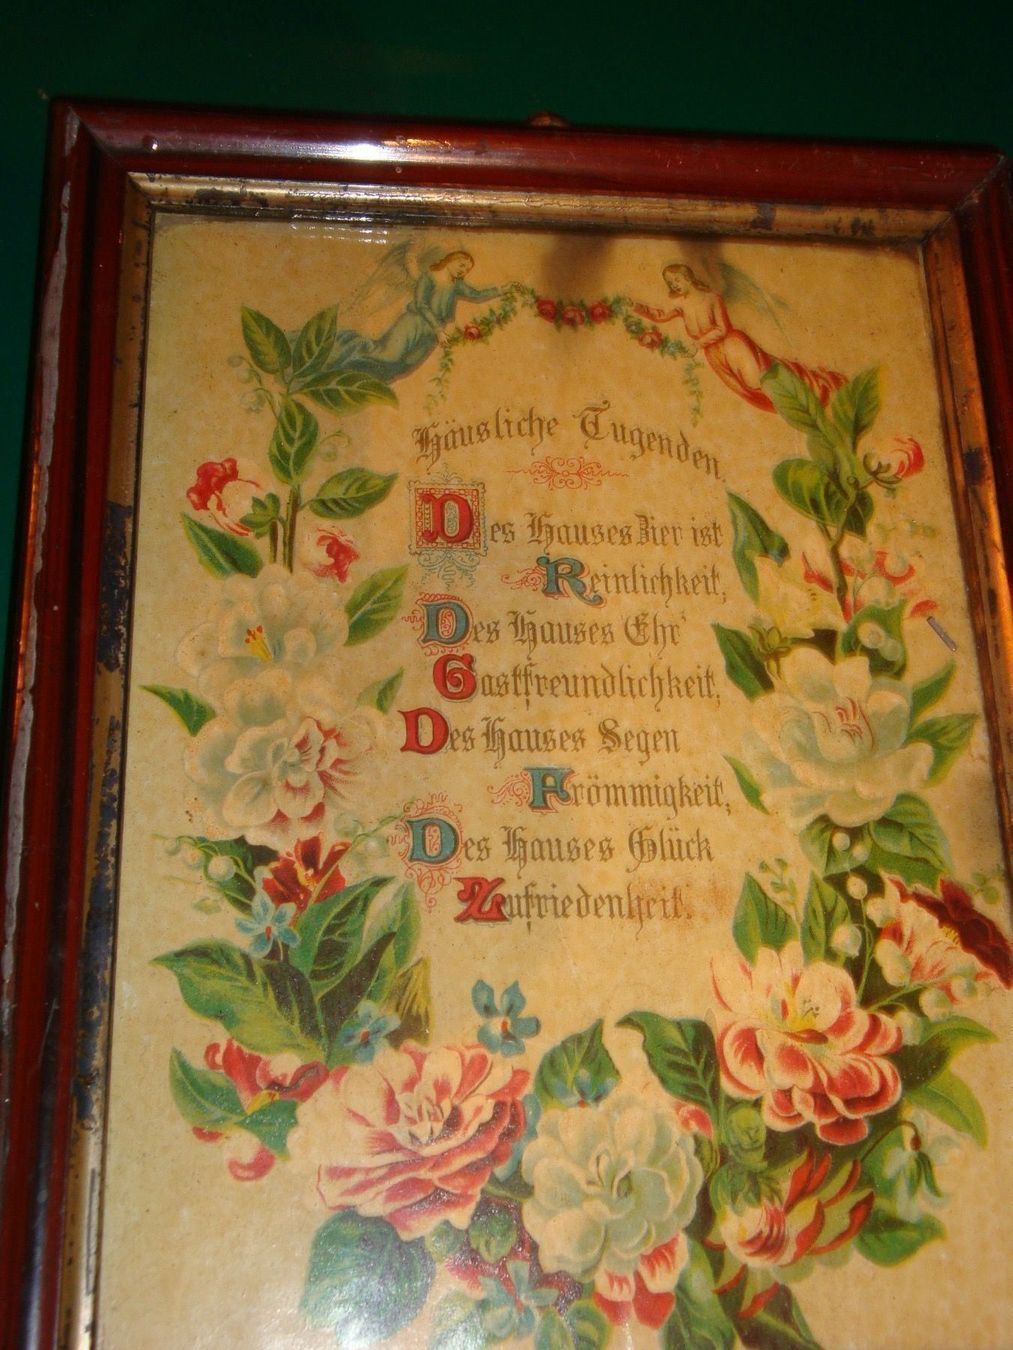 Häusliche Tugenden
Des Hauses Zier ist
Reinlichkeit,
Des Hauses Ehr'
Gastfreundlichkeit,
Des Hauses Segen
Frömmigkeit,
Des Hauses Glück
Zufriedenheit.